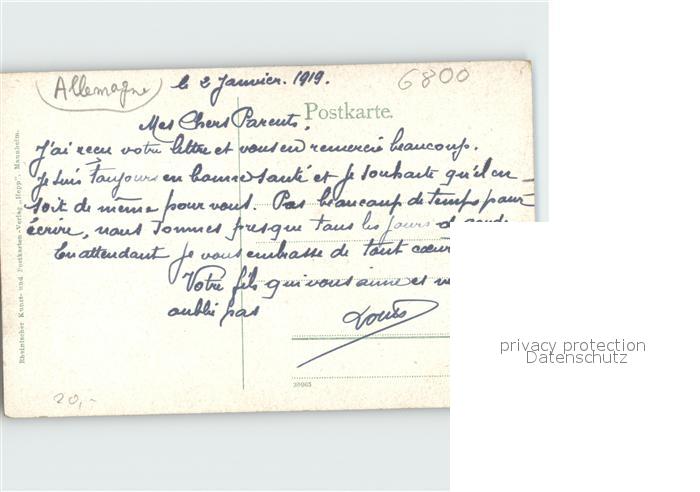 Allemagne
le 2 Janvier. 1919.
6800
Postkarte.
Mes Chers Parents,
J'ai reçu votre lettre et vous en remercie beaucoup.
Je suis Toujours en bonne santé et je souhaite qu'il en
soit de même pour vous. Pas beaucoup de temps pour
écrire, nous sommes presque tous les jours de garde
En attendant je vous embrasse de tout cœur
Votre fils qui vous aime et
oublie pas
Louis
Rheinischer Kunst- und Postkarten-Verlag „Hepp", Mannheim.
20,-
privacy protection
Datenschutz